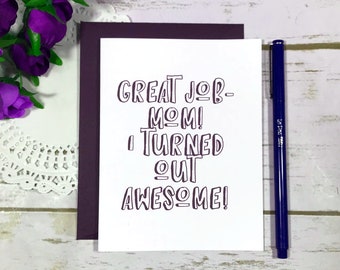 GREAT JOB-
MOM!
I TURNED
OUT
AWESOME!